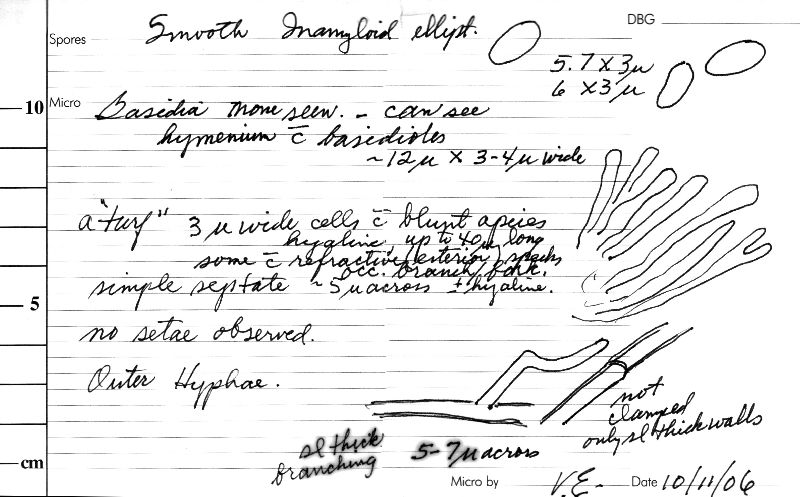 DBG
Spores Smooth Inamyloid ellipt.
5.7 X 3µ
6 X 3µ
10
Micro Basidia none seen. – can see
hymenium c̄ basidioles
~12µ X 3-4µ wide
a "turf" 3 µ wide cells c̄ blunt apices
hyaline, up to 40µ long
some c̄ refractive exterior specks
occ. branch, fork.
simple septate ~5µ across ± hyaline.
5
no setae observed.
Outer Hyphae.
not
clamped
only sl thick walls
sl thick
branching
5-7µ across
cm
Micro by V.E. Date 10/11/06